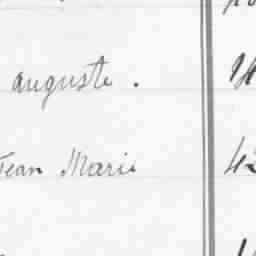 auguste.
Jean Marie 42